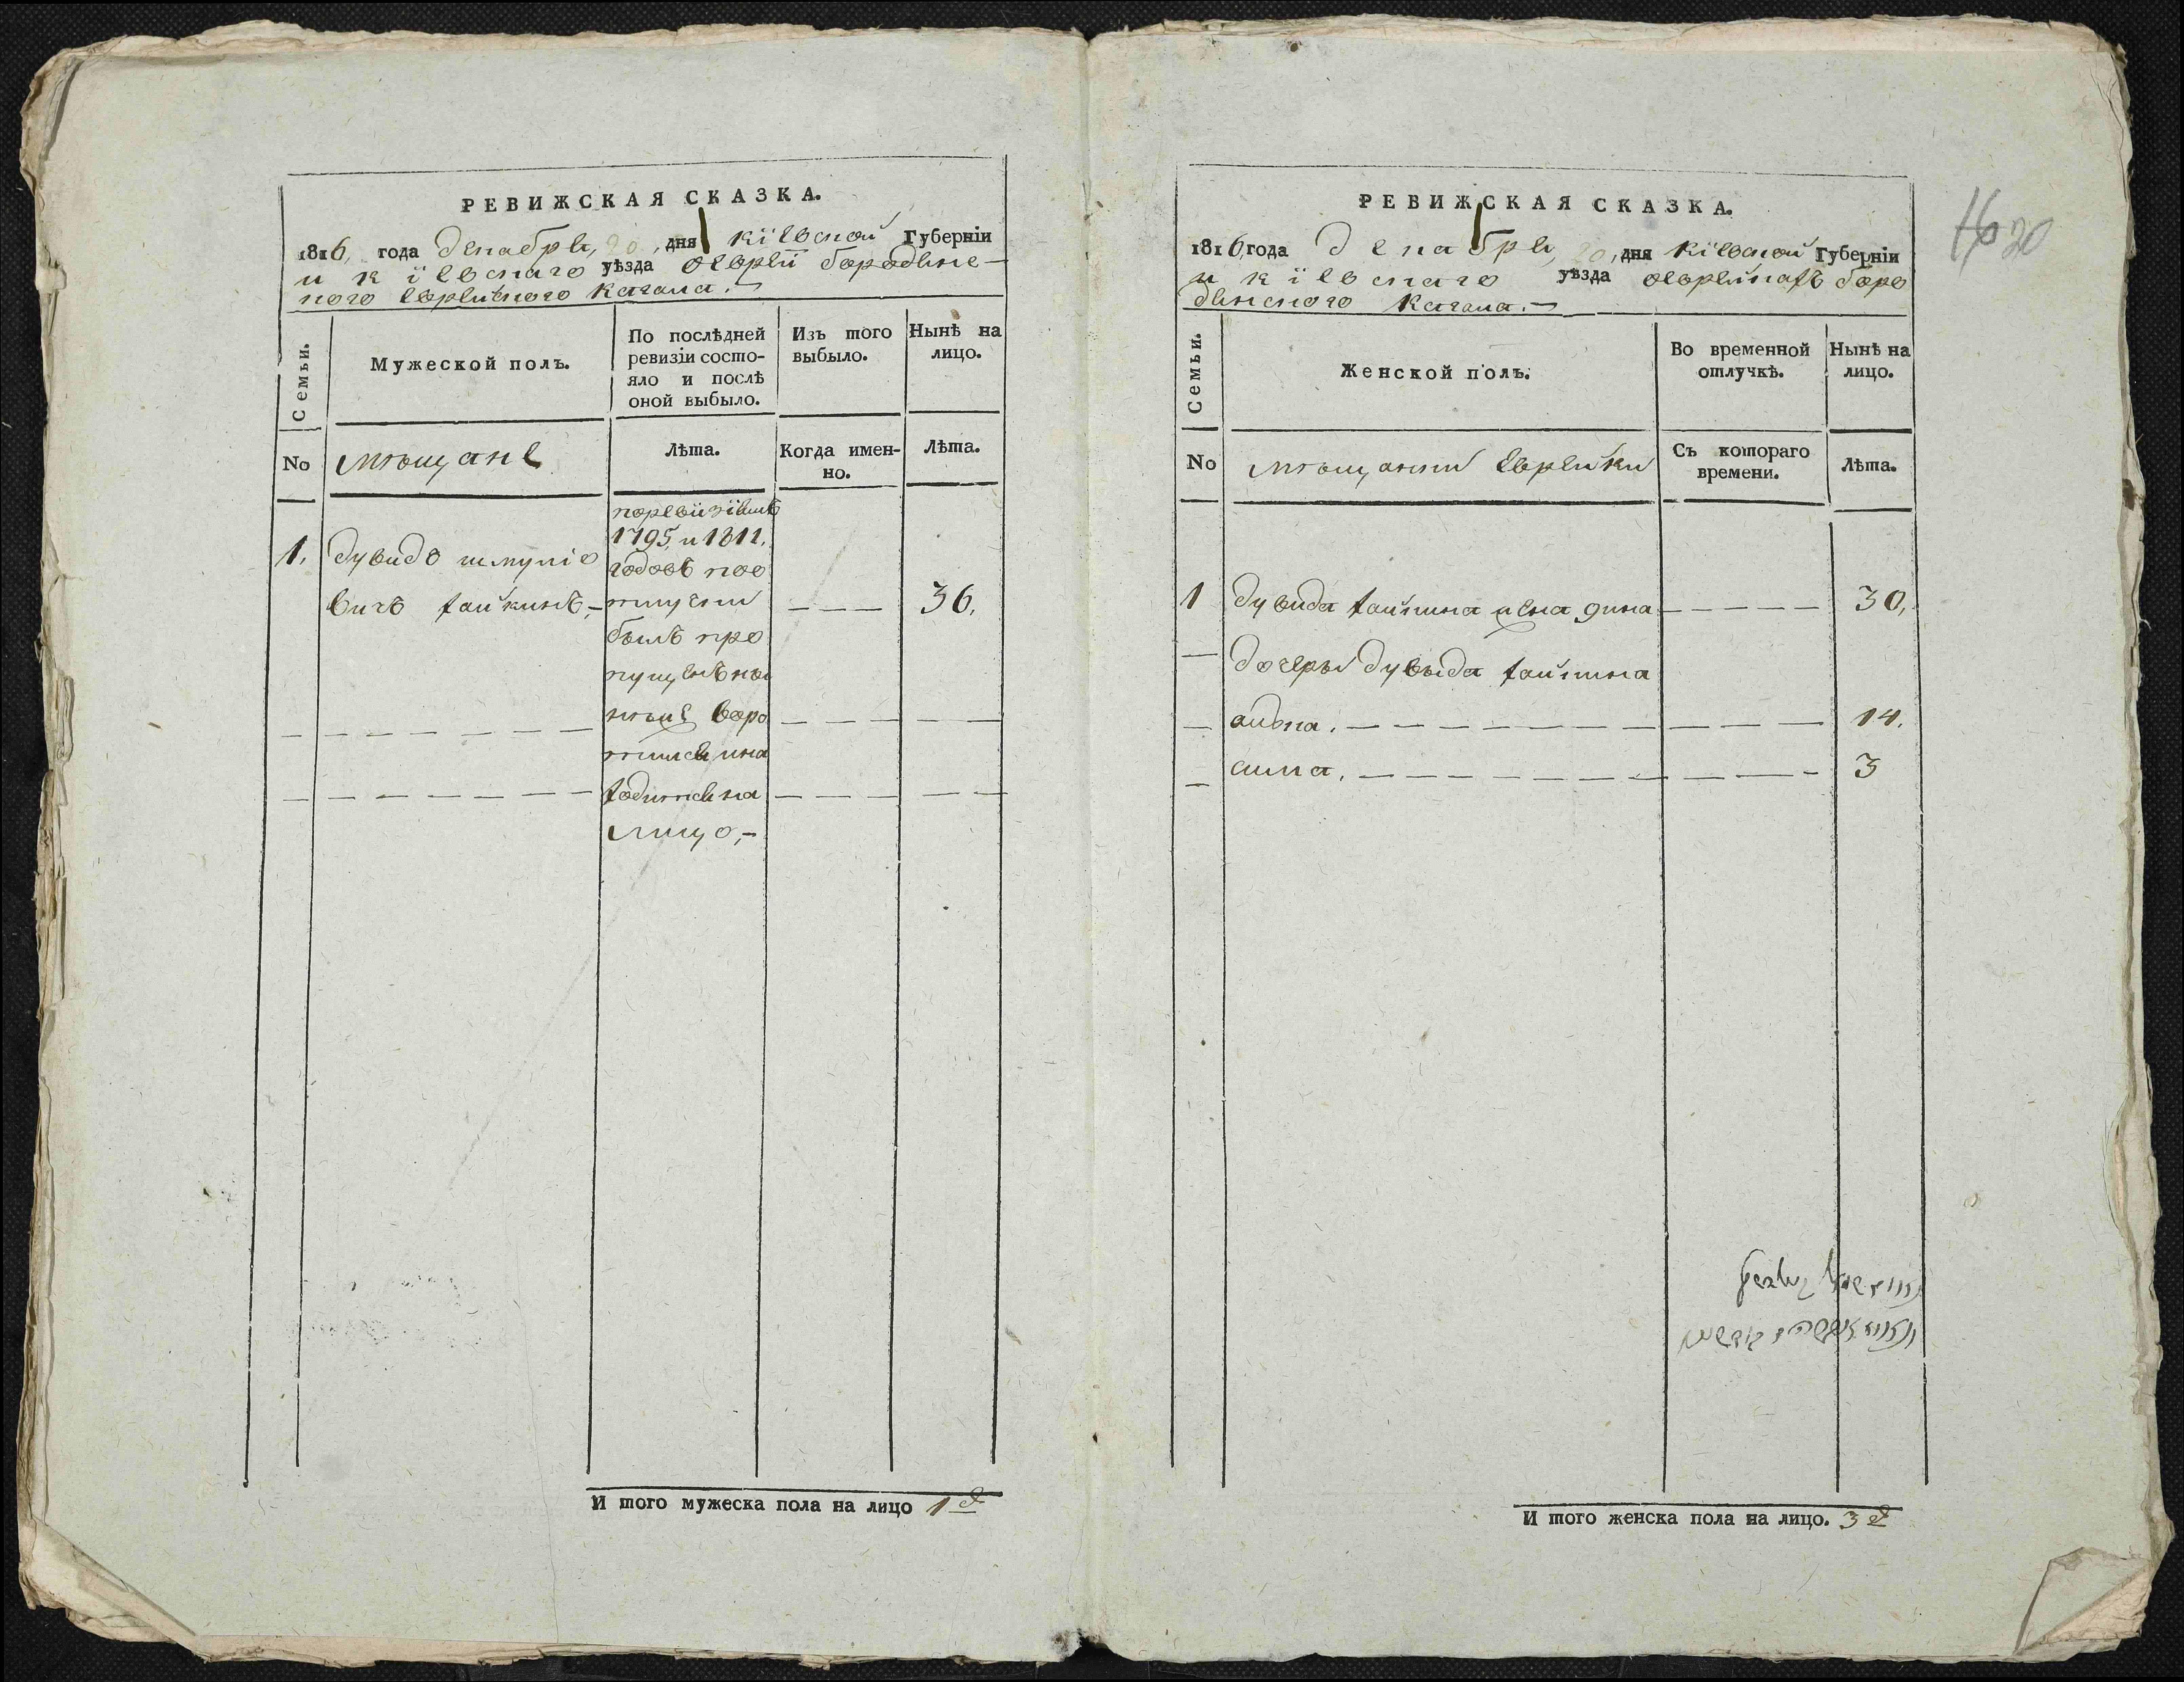 РЕВИЖСКАЯ СКАЗКА.
1816, года декабря, 20, дня кіевской Губерніи
и кіевскаго уѣзда о еврей бородянс-
кого еврейского кагала.
Семьи.
Мужеской полъ.
По послѣдней ревизіи состо-
яло и послѣ оной выбыло.
Изъ того выбыло.
Нынѣ на лицо.
No
мѣщане
Лѣта.
Когда имен-
но.
Лѣта.
поревизіямъ
1795, и 1811,
1. дувидъ шмуліо
годовъ поо
вичъ хайкинъ,-
тлучки
36,
былъ про
пущенъ ны
нѣже воро
тился ина
ходится на
лицо,-
И того мужеска пола на лицо 1
РЕВИЖСКАЯ СКАЗКА.
1816, года декабря, 20, дня кіевской Губерніи
и кіевскаго уѣзда о еврейкахъ боро
дянского кагала.
Семьи.
Женской полъ.
Во временной отлучкѣ.
Нынѣ на лицо.
No
мѣщанки еврейки
Съ котораго времени.
Лѣта.
1 дувида хайкина жена дина 30,
дочеры дувыда хайкина
14.
сима. 3
И того женска пола на лицо. 3
20